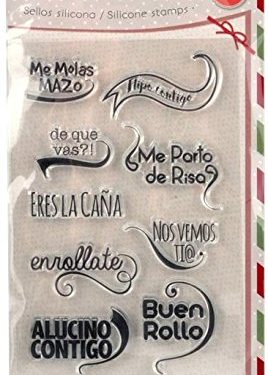 Sellos silicona / Silicone stamps ·
Me Molas
MAZO
Flipo contigo
de que
vas?!
Me Parto
de Risa
ERES LA CAÑA
NOS VEMOS
TI@
enrollate
ALUCINO
CONTIGO
Buen
Rollo